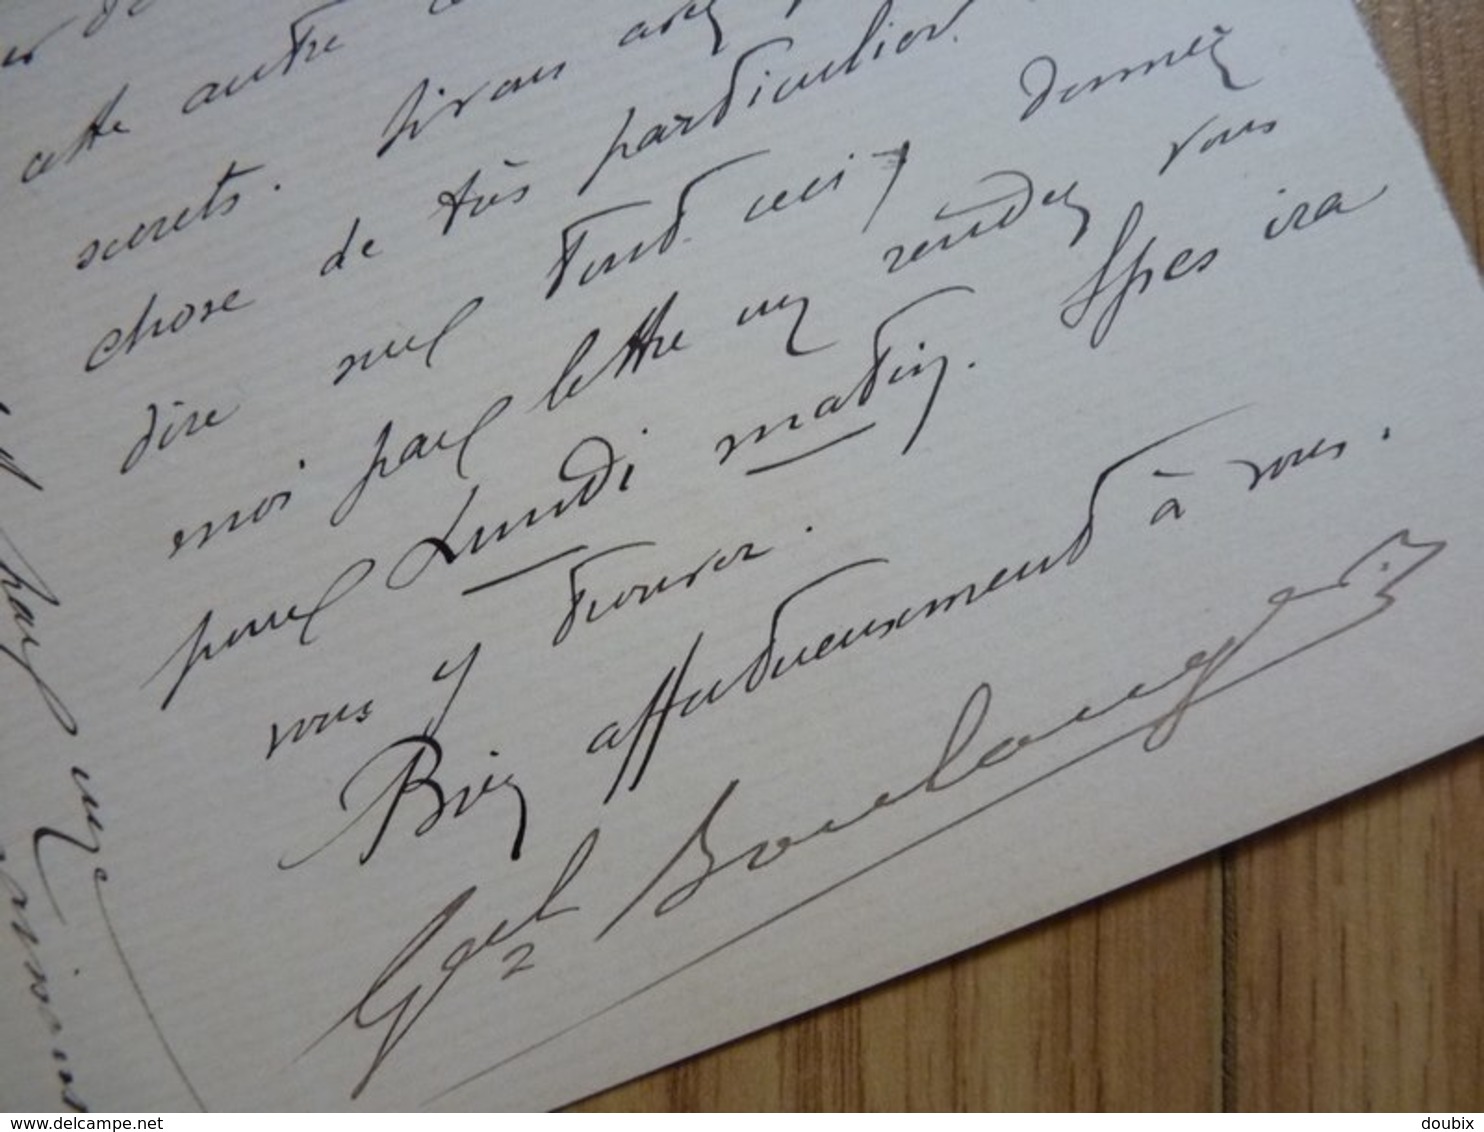 cette autre
secrets. Si vous avez
chose de très particulier
dire sur tout ceci, donnez
moi par lettre un rendez vous
pour Lundi matin. Spes ira
vous y trouver.
Bien affectueusement à vous.
Gal Boulanger
delcampe.net
doubix